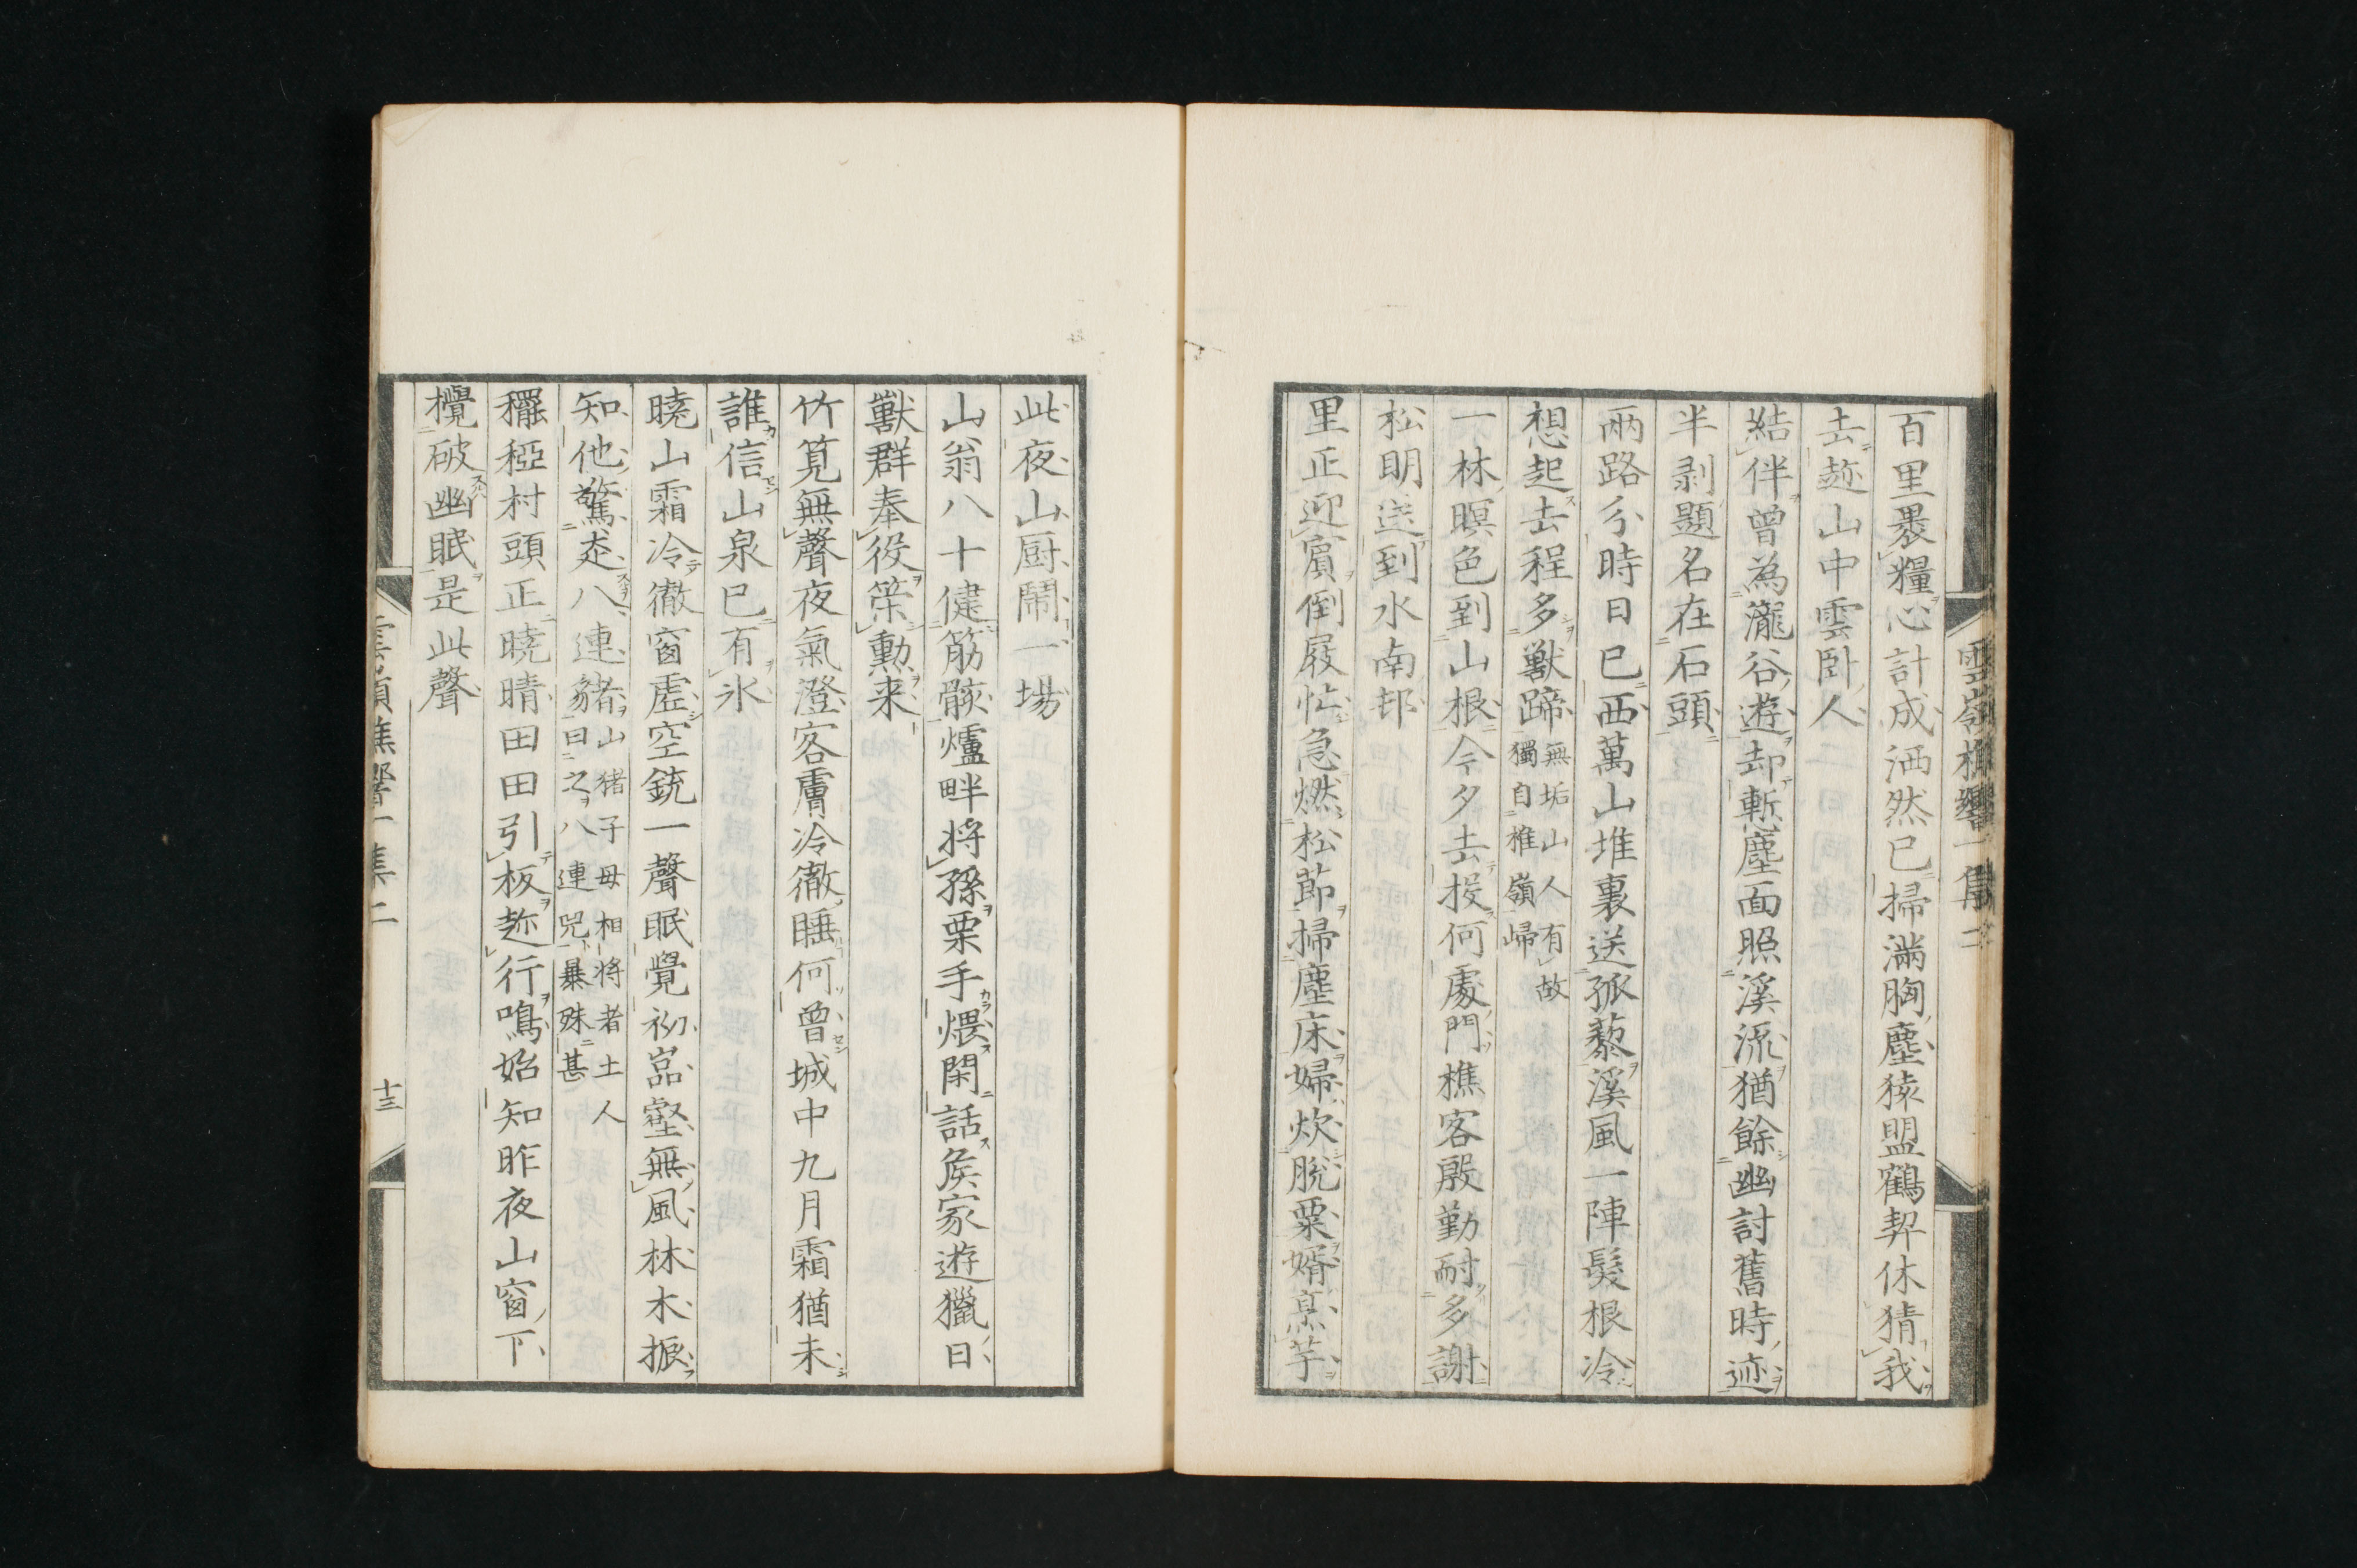 雲嶺樵響一集二
百里褁糧心計成洒然已掃滿胸塵猿盟鶴契休猜我
去趂山中雲卧人
結伴曾為瀧谷遊却慙塵面照溪流猶餘幽討舊時迹
半剥題名在石頭
兩路分時日已西萬山堆裏送孤藜溪風一陣髮根冷
想起去程多獸蹄無垢山人有故
獨自椎嶺歸
一林暝色到山根今夕去投何處門樵客殷勤耐多謝
松明送到水南邨
里正迎賔倒屐忙急燃松節掃塵床婦炊脫粟婿烹芋
此夜山厨鬧一場
山翁八十健筋骸爐畔将孫栗手煨閑話矦家遊獵日
獸群奉役策勳来
竹筧無聲夜氣澄客膚冷徹睡何曾城中九月霜猶未
誰信山泉已有氷
曉山霜冷徹窗虛空銃一聲眠覺初嵓壑無風林木振
知他驚走八連豬山猪子母相将者土人
曰之八連兕暴殊甚
䆉稏村頭正曉晴田田引板趂行鳴始知昨夜山窗下
攪破幽眠是此聲
雲嶺樵響一集二
十三